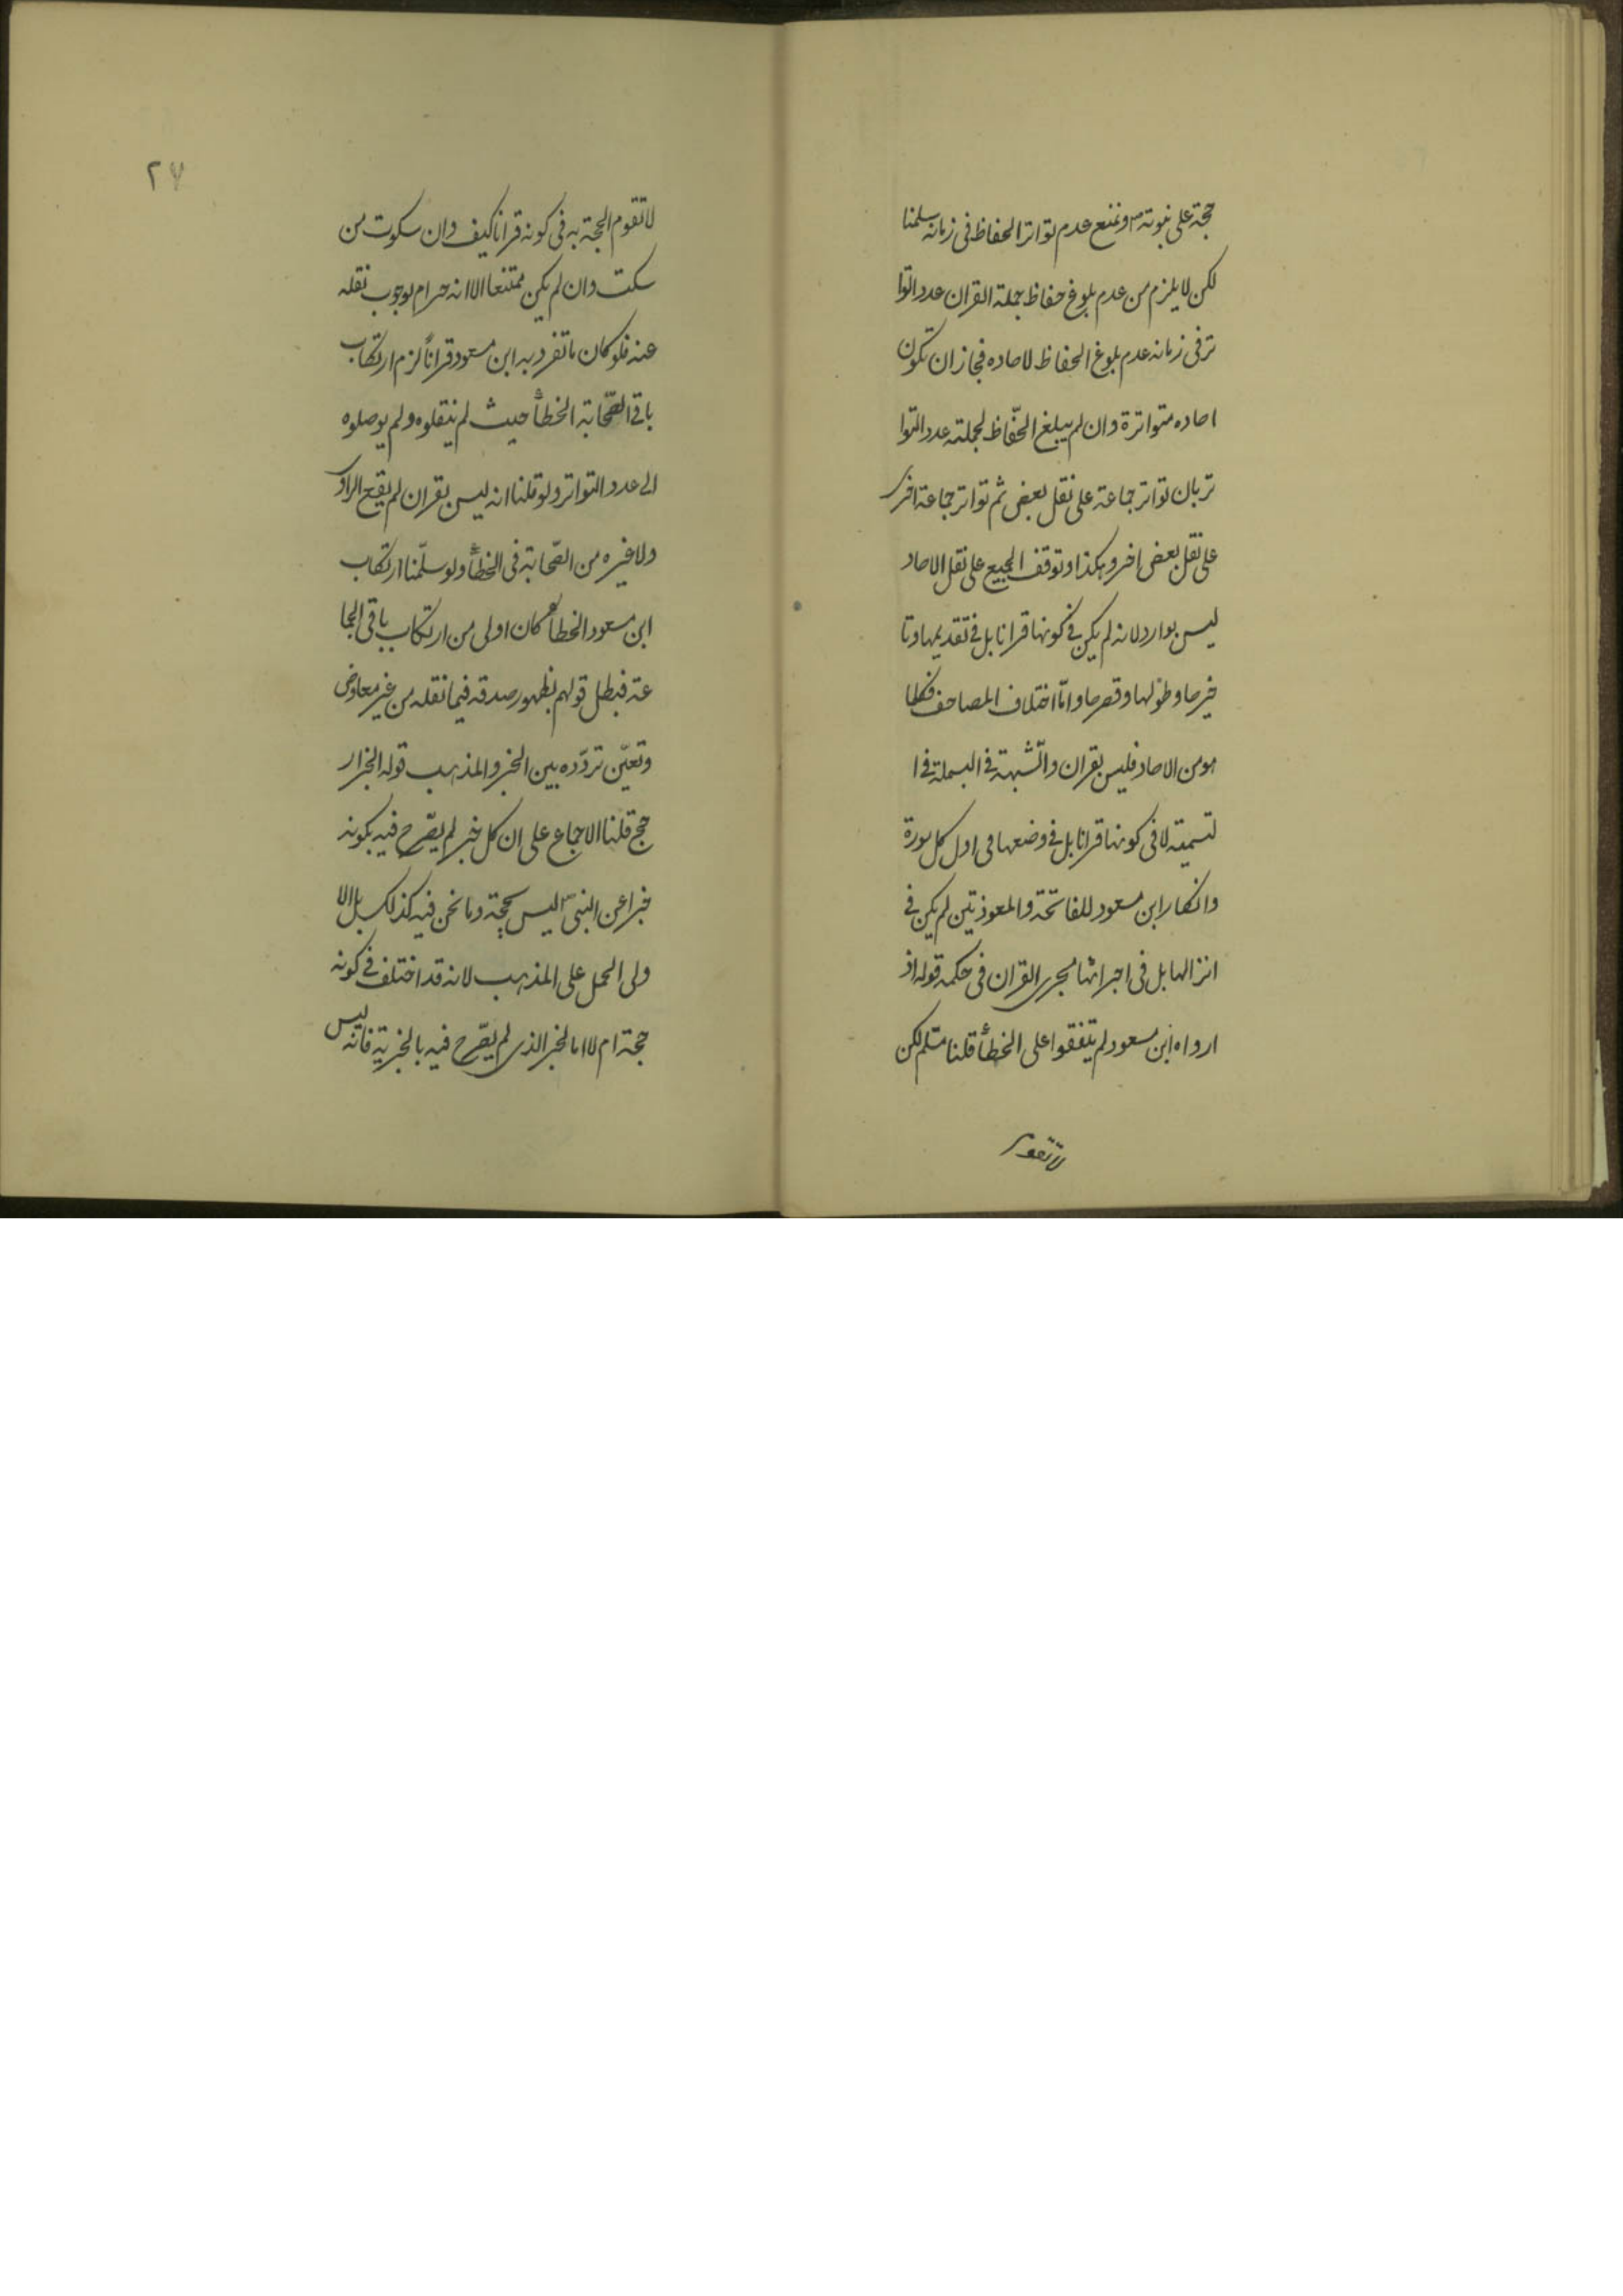 حجة على نبوته ونمنع عدم تواتر الحفاظ فى زمانه سلمنا
لكن لا يلزم من عدم بلوغ حفاظ جملة القران عدد التوا
تر فى زمانه عدم بلوغ الحفاظ لاحاده فجاز ان تكون
احاده متواترة وان لم يبلغ الحفّاظ لجملته عدد التوا
تر بان تواتر جماعة على نقل بعض ثم تواتر جماعة اخرى
على نقل بعض اخر وهكذا وتوقف الجميع على نقل الاحاد
ليس بوارد لانه لم يكن فى كونها قرانا بل فى تقديمها وتا
خيرها وطولها وقصرها وامّا اختلاف المصاحف فكلما
هو من الاحاد فليس بقران والشّبهة فى البسملة فى ا
لتسمية لا فى كونها قرانا بل فى وضعها فى اول كل سورة
وانكار ابن مسعود للفاتحة والمعوذتين لم يكن فى
انزالها بل فى اجرائها مجرى القران فى حكمه قوله اذ
ا رواه ابن مسعود لم يتفقوا على الخطأ قلنا مسلم لكن
لا تقوم
٢٧
لا تقوم الحجة به فى كونه قرانا كيف وان سكوت من
سكت وان لم يكن ممتنعا الا انه حرام لوجوب نقله
عنه فلو كان ما تفرد به ابن مسعود قراناً لزم ارتكاب
باقى الصّحابة الخطأ حيث لم ينقلوه ولم يوصلوه
الى عدد التواتر ولو قلنا انه ليس بقران لم يقع الراو
ولا غيره من الصّحابة فى الخطأ ولو سلّمنا ارتكاب
ابن مسعود الخطأ كان اولى من ارتكاب باقى الجما
عة فبطل قولهم بظهور صدقه فيما نقله من غير معارض
وتعيّن تردّده بين الخبر والمذهب قوله الخبر ار
جح قلنا الاجماع على ان كل خبر لم يصّرح فيه بكونه
خبرا عن النبى ليس بحجة وما نحن فيه كذلك بل الا
ولى الحمل على المذهب لانه قد اختلف فى كونه
حجة ام لا اما الخبر الذى لم يصّرح فيه بالخبرية فانه ليس